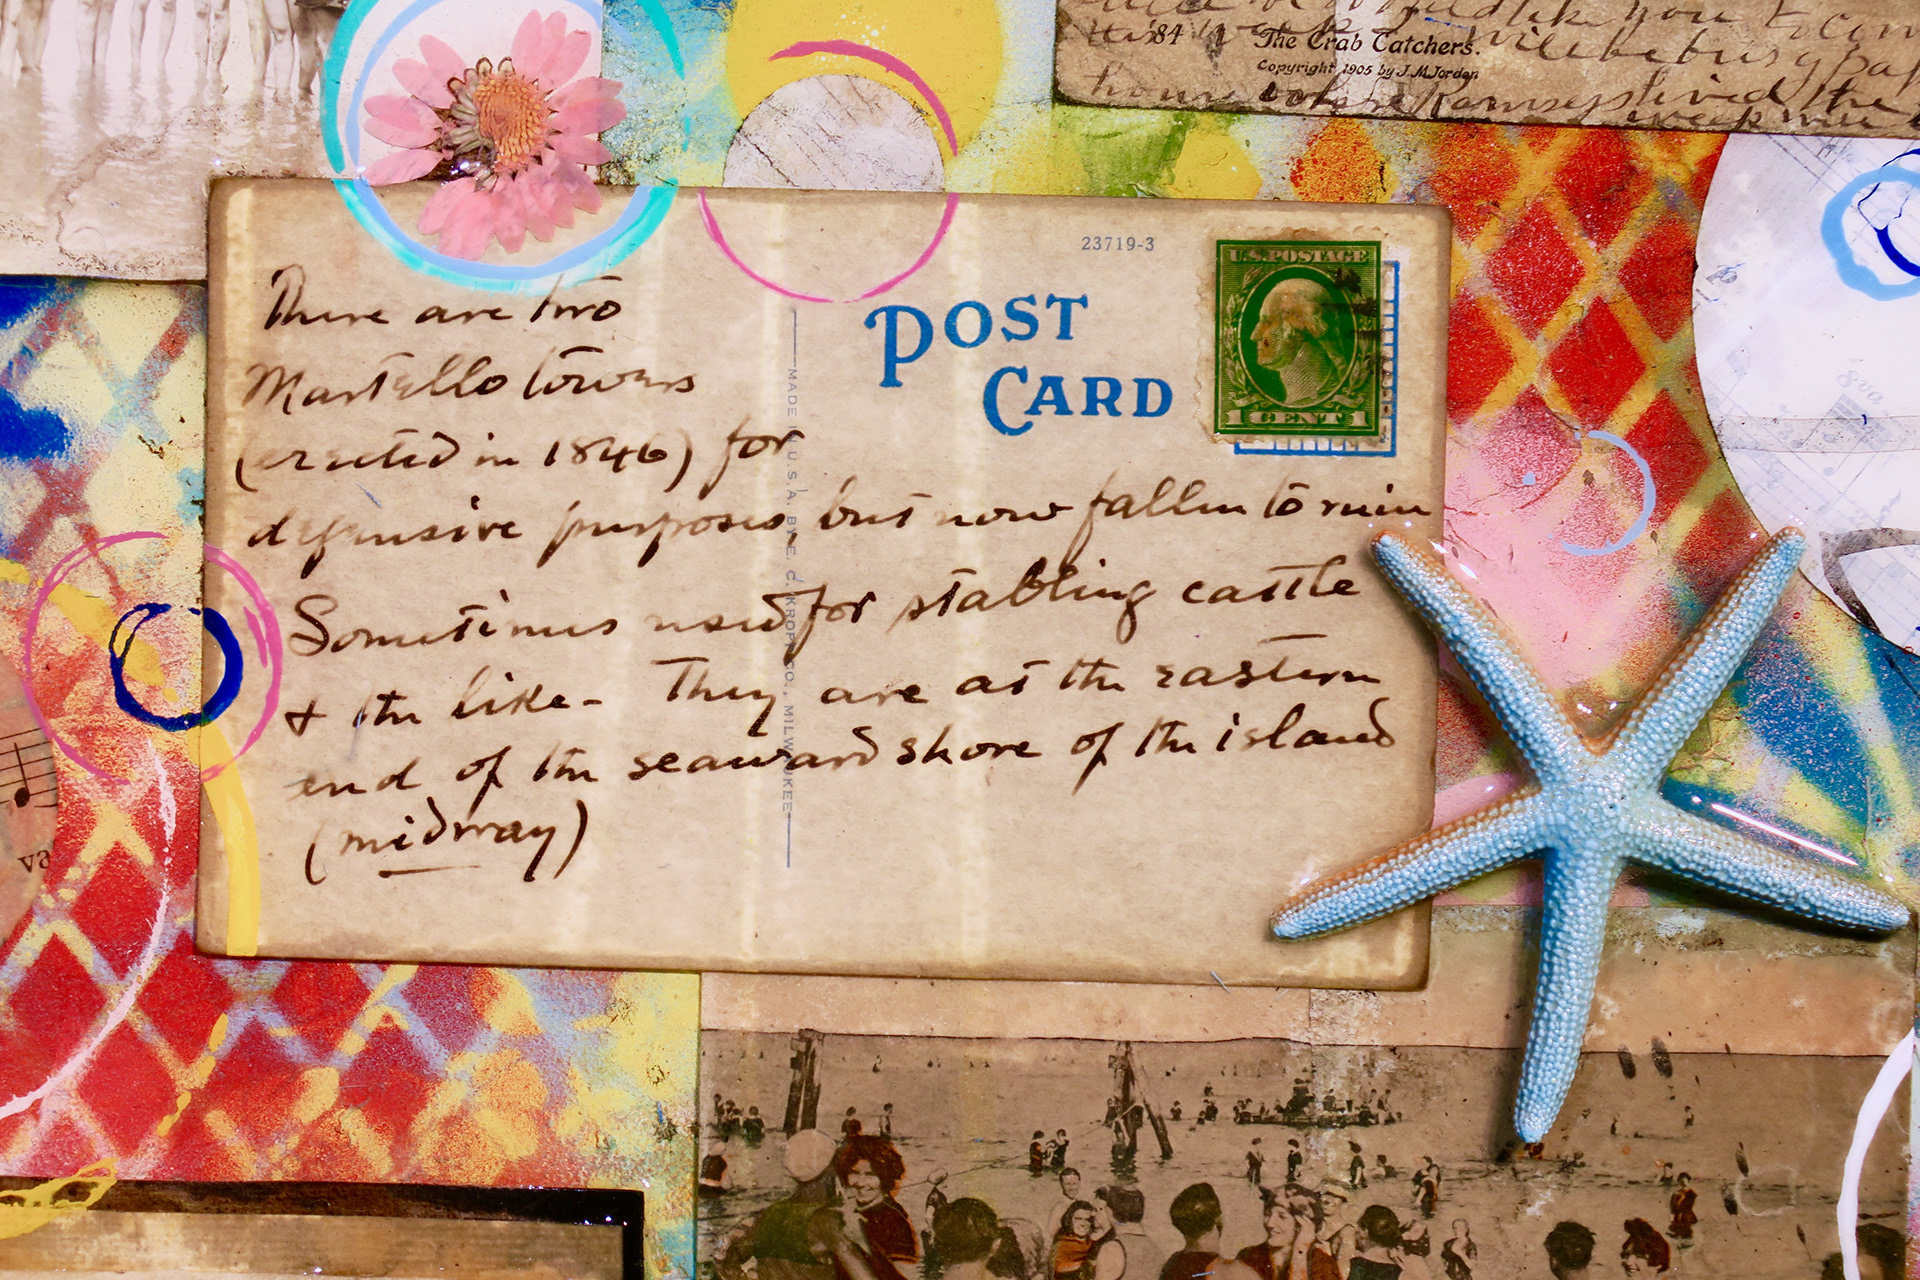 '84
The Crab Catchers.
Copyright 1905 by J.M. Jordan
23719-3
U.S. POSTAGE
1 CENT 1
POST
CARD
There are two
Martello towers
(erected in 1846) for
defensive purposes, but now fallen to ruin
Sometimes used for stabling castle
& the like - They are at the eastern
end of the seaward shore of the island
(midway)
MADE IN U.S.A. BY E. C. KROPP CO., MILWAUKEE
8va
va